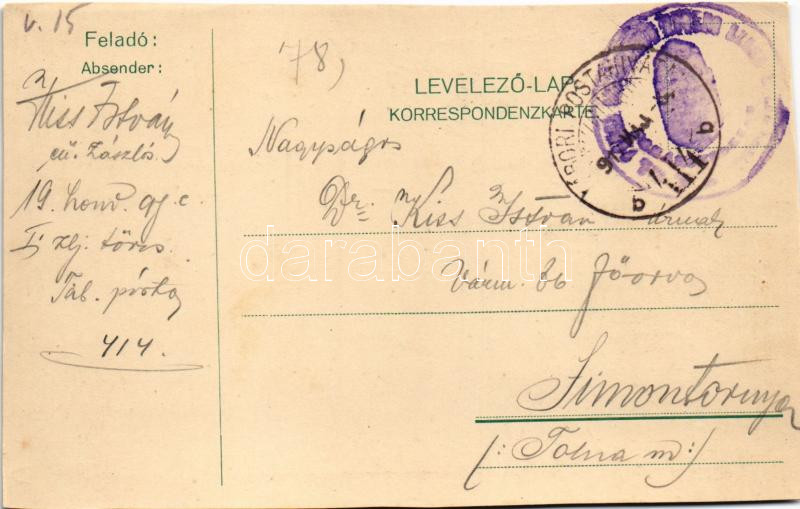 v. 15
Feladó:
Absender:
78,
Kiss István
cs. Zászlós
19. honv. gy. e.
I. zlj. törzs
Táb. pósta
414.
LEVELEZŐ-LAP
KORRESPONDENZKARTE
TÁBORI POSTAHIVATAL
b
Nagyságos
Dr. Kiss István
Várm. tb főorvos
darabanth
Simontornya
(: Tolna m :)